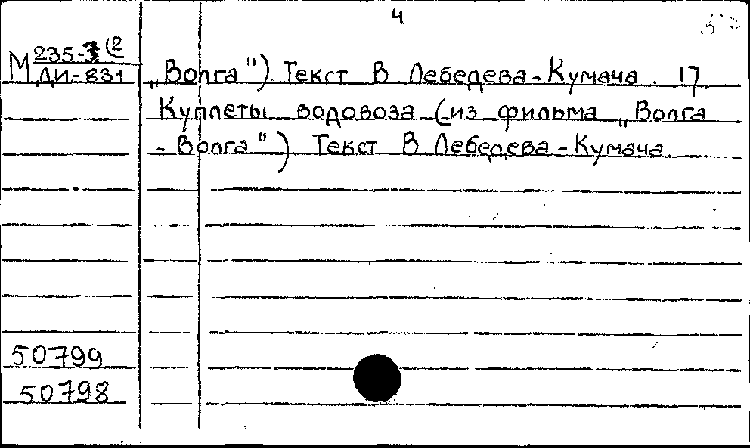 4
М 235-3 (2
ДИ-831
„Волга") Текст В Лебедева-Кумача. 17
Куплеты водовоза (из фильма „Волга
- Волга") Текст В Лебедева-Кумача.
50799
50798